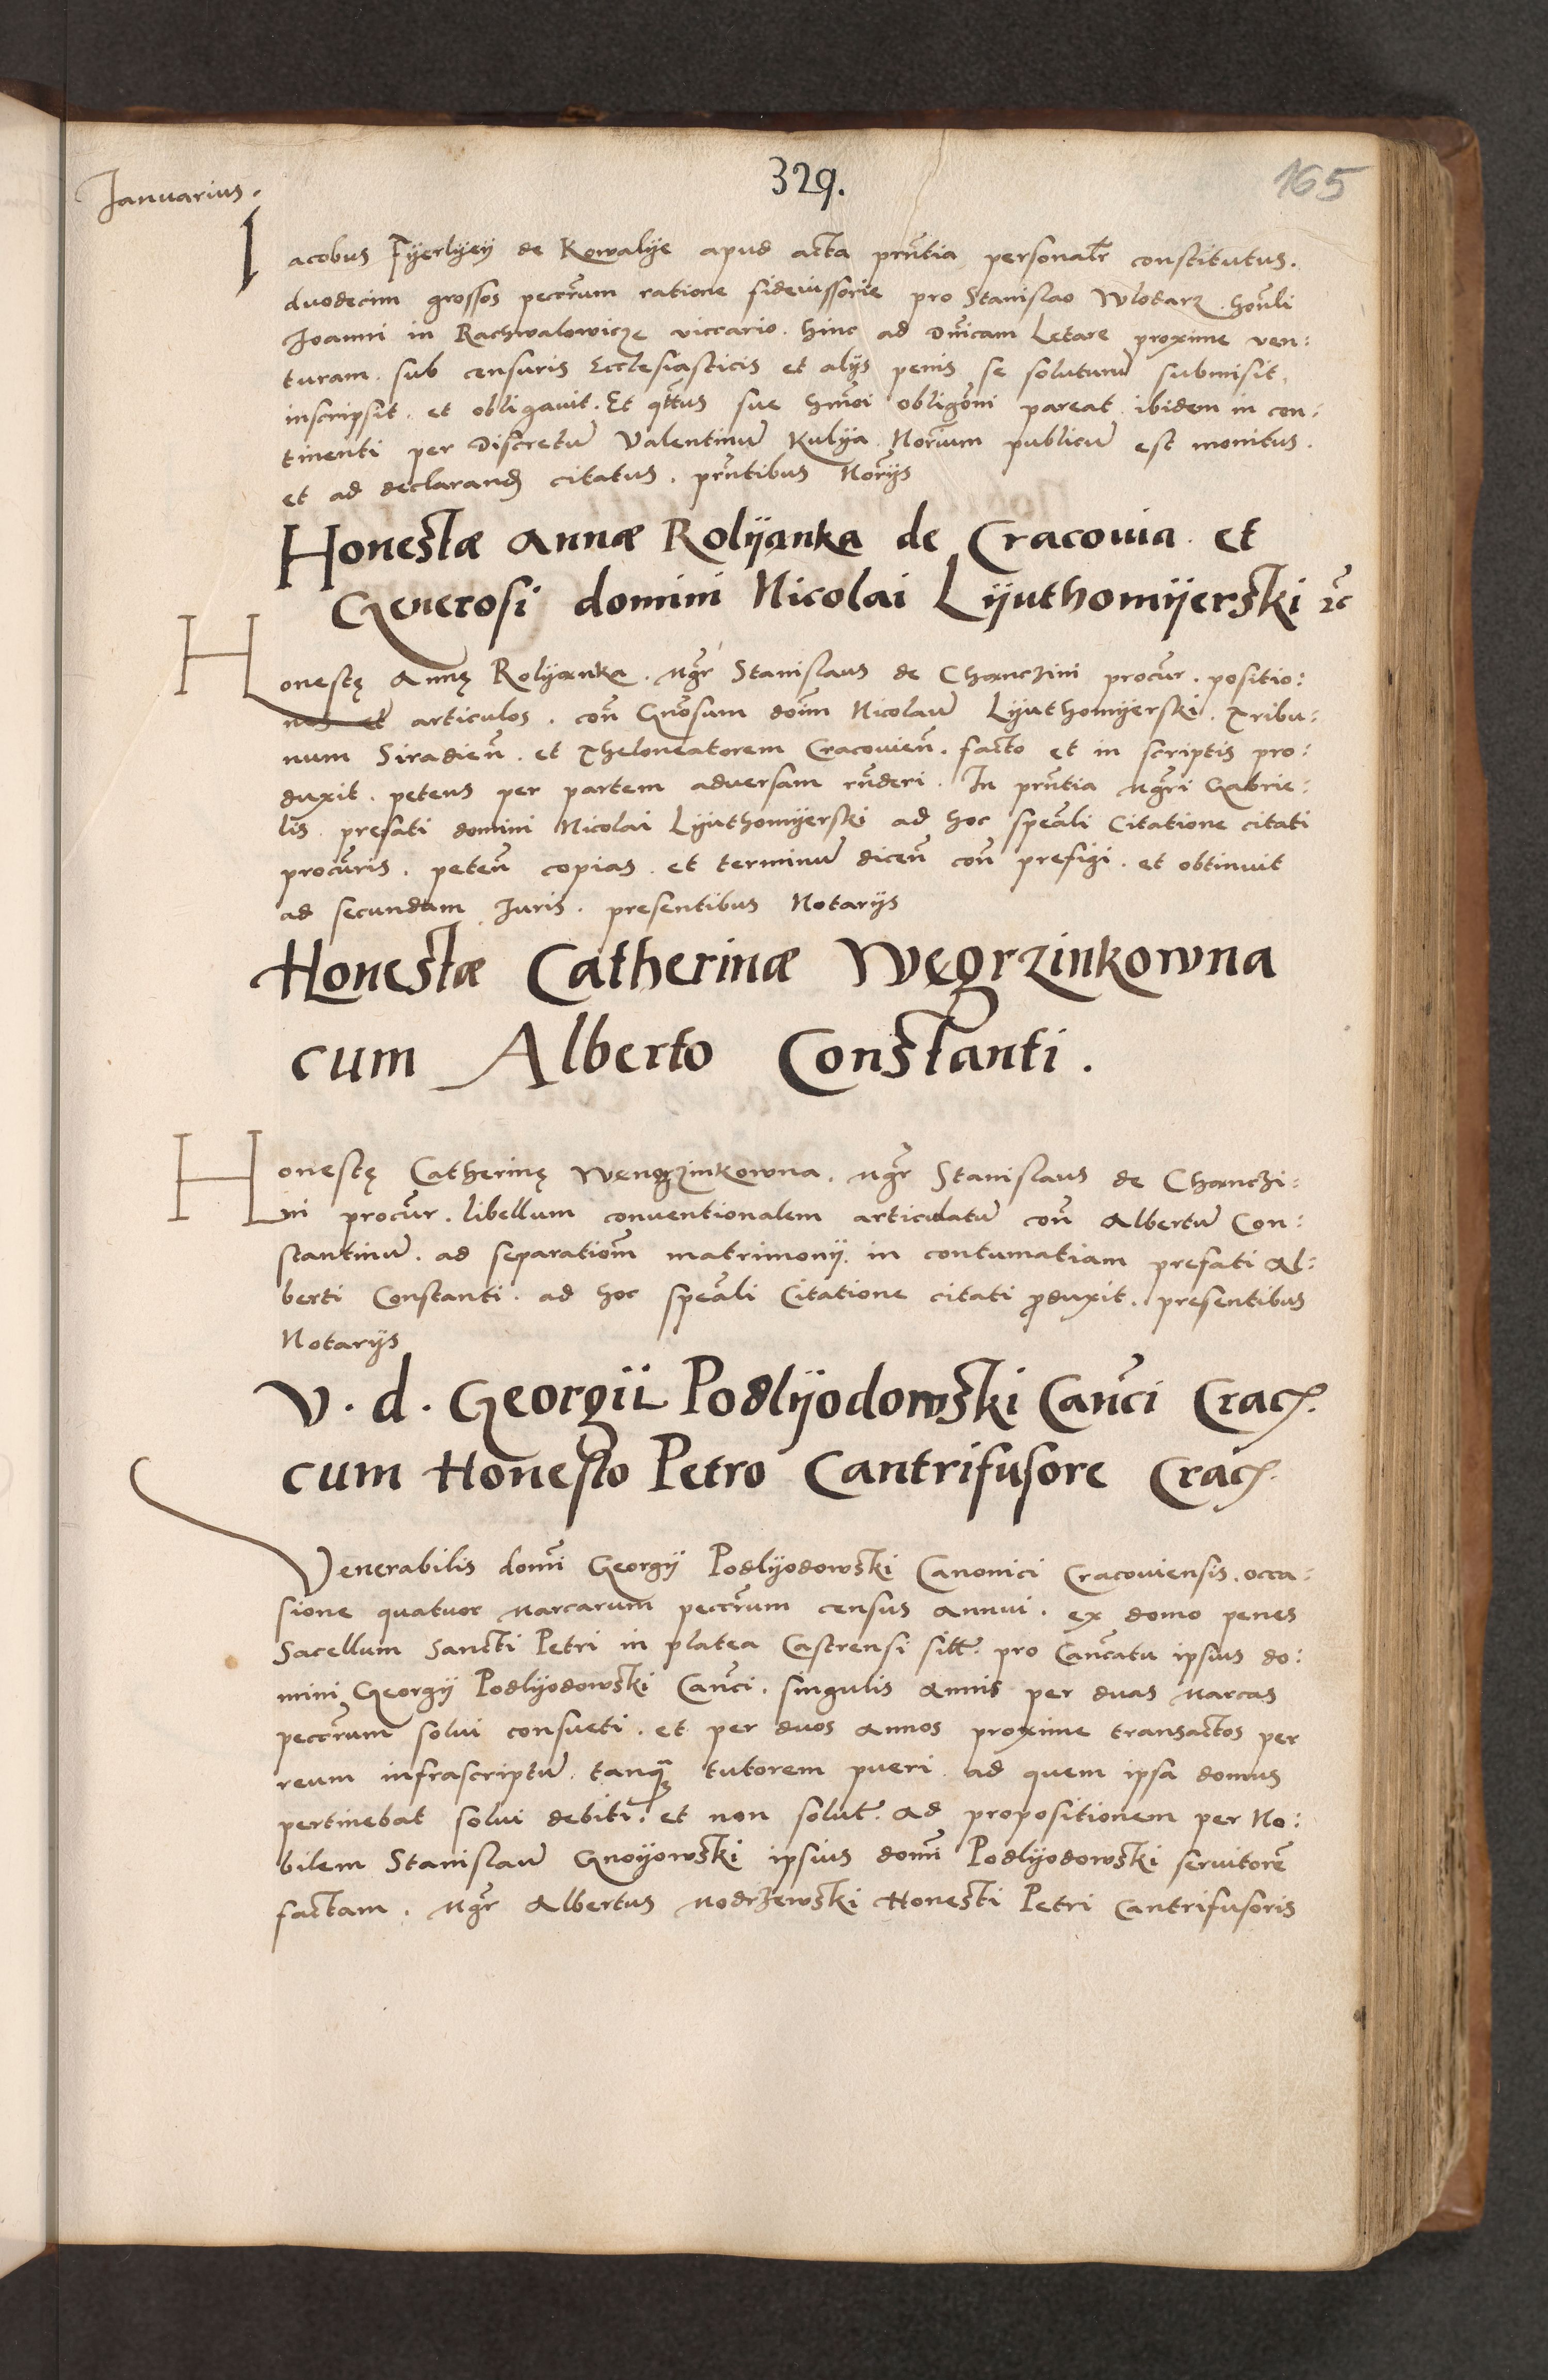 329.
165
Ianuarius.
Iacobus Fyerlyey de Kowalye apud acta pñtia personalr constitutus.
duodecim grossos peccrum ratione fideiussorie pro Stanislao Wlodarz. honli
Joanni in Rachwalowicze viccario. hinc ad Dnicam Letare proxime ven:
turam. sub censuris Ecclesiasticis et alijs penis se soluturu submisit.
inscripsit. et obligavit. Et qttus sue hmoi obligoni pareat. ibidem in con:
tinenti per Discretu Valentinu Kulya Norium publicu est monitus.
et ad declarand citatus. pñtibus Norijs
Honestæ Annæ Rolyanka de Cracouia et
Generosi domini Nicolai Lyuthomyerski rc
Honestę Annę Rolyanka. Mgr Stanislaus de Chanczini procur. positio:
nes et articulos. con Gnosum doim Nicolau Lyuthomyerski. Tribu:
num Siradien. et Theloneatorem Cracouien. facto et in scriptis pro:
duxit. petens per partem adversam rnderi. In pñtia Mgri Gabrie:
lis prefati domini Nicolai Lyuthomyerski ad hoc speali Citatione citati
procuris. peten copias et terminu dicen con prefigi. et obtinuit
ad secundam Iuris. presentibus Notarijs
Honestæ Catherinæ Węgrzinkowna
cum Alberto Constanti.
Honestę Catherinę Wengrzinkowna. Mgr Stanislaus de Chanczi:
ni procur. libellum conventionalem articulatu con Albertu Con:
stantinu. ad separationem matrimonij in contumatiam prefati Al:
berti Constanti. ad hoc speali Citatione citati produxit. presentibus
Notarijs
V. d. Georgii Podlyodowski Canci Crac.
cum Honesto Petro Cantrifusore Crac.
Venerabilis domi Georgij Podlyodowski Canonici Cracouiensis. occa:
sione quatuor Marcarum peccrum census Annui. ex domo penes
Sacellum Sancti Petri in platea Castrensi sitt. pro Cancatu ipsius do:
mini Georgij Podlyodowski Canci. singulis Annis per duas Marcas
peccrum solui consueti. et per duos Annos proxime transactos per
reum infrascriptu. tanq tutorem pueri ad quem ipsa domus
pertinebat solui debiti. et non solut. Ad propositionem per No:
bilem Stanislau Gnoyowski ipsius domi Podlyodowski seruitore
factam. Mgr Albertus Modrzewski Honesti Petri Cantrifusoris